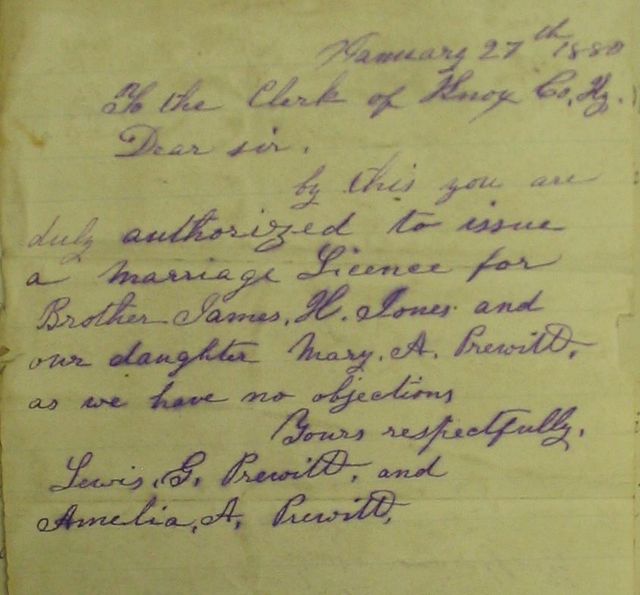 January 27th 1880
To the Clerk of Knox Co, Ky.
Dear sir.
by this you are
duly authorized to issue
a marriage Licence for
Brother James. H. Jones and
our daughter Mary. A. Prewitt.
as we have no objections
Yours respectfully.
Lewis. G. Prewitt. and
Amelia. A. Prewitt.